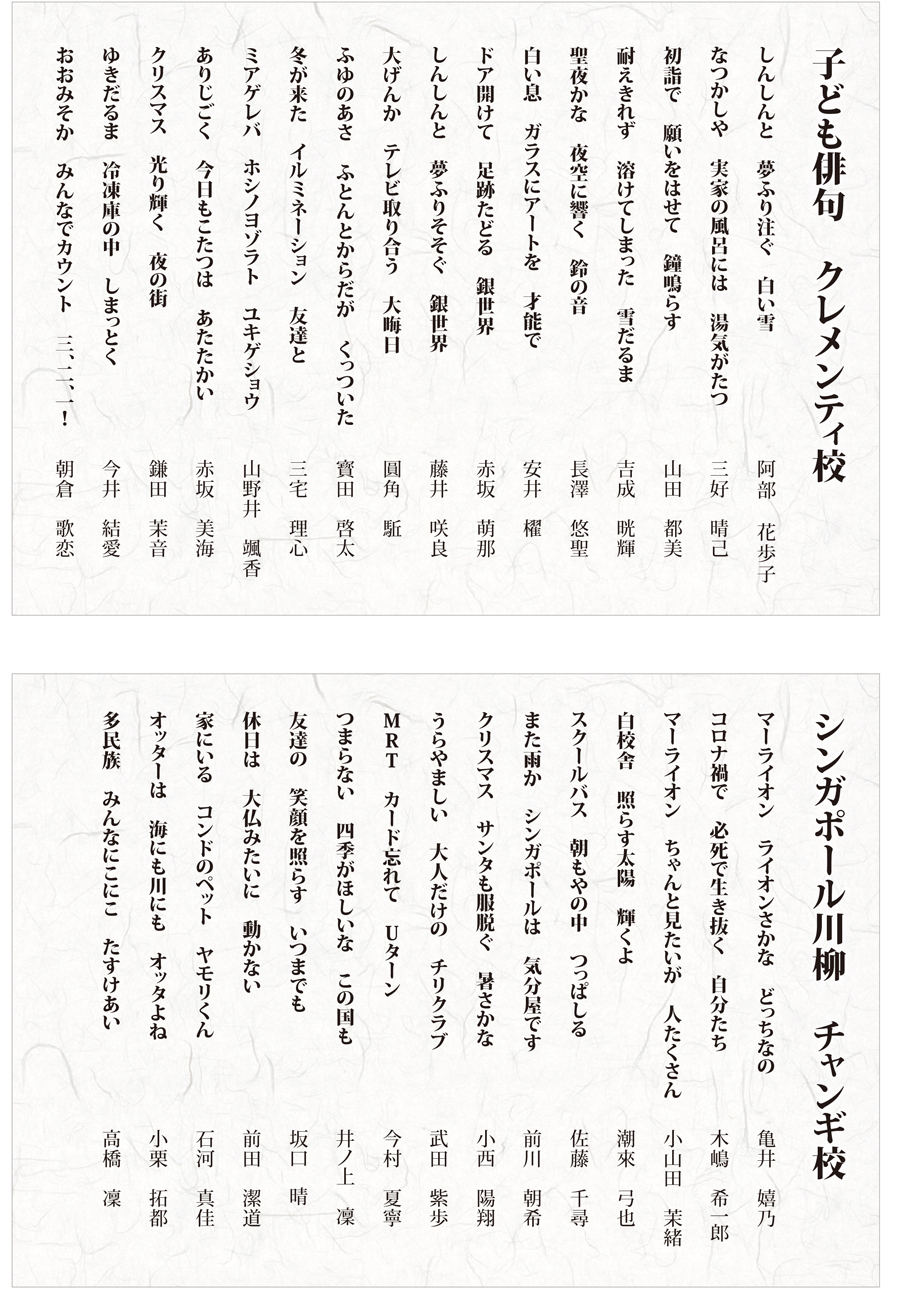 子ども俳句　クレメンティ校
しんしんと　夢ふり注ぐ　白い雪　阿部　花歩子
なつかしや　実家の風呂には　湯気がたつ　三好　晴己
初詣で　願いをはせて　鐘鳴らす　山田　都美
耐えきれず　溶けてしまった　雪だるま　吉成　晄輝
聖夜かな　夜空に響く　鈴の音　長澤　悠聖
白い息　ガラスにアートを　才能で　安井　櫂
ドア開けて　足跡たどる　銀世界　赤坂　萌那
しんしんと　夢ふりそそぐ　銀世界　藤井　咲良
大げんか　テレビ取り合う　大晦日　圓角　駈
ふゆのあさ　ふとんとからだが　くっついた　寳田　啓太
冬が来た　イルミネーション　友達と　三宅　理心
ミアゲレバ　ホシノヨゾラト　ユキゲショウ　山野井　颯香
ありじごく　今日もこたつは　あたたかい　赤坂　美海
クリスマス　光り輝く　夜の街　鎌田　茉音
ゆきだるま　冷凍庫の中　しまっとく　今井　結愛
おおみそか　みんなでカウント　三、二、一！　朝倉　歌恋
シンガポール川柳　チャンギ校
マーライオン　ライオンさかな　どっちなの　亀井　嬉乃
コロナ禍で　必死で生き抜く　自分たち　木嶋　希一郎
マーライオン　ちゃんと見たいが　人たくさん　小山田　茉緒
白校舎　照らす太陽　輝くよ　潮來　弓也
スクールバス　朝もやの中　つっぱしる　佐藤　千尋
また雨か　シンガポールは　気分屋です　前川　朝希
クリスマス　サンタも服脱ぐ　暑さかな　小西　陽翔
うらやましい　大人だけの　チリクラブ　武田　紫歩
MRT　カード忘れて　Uターン　今村　夏寧
つまらない　四季がほしいな　この国も　井ノ上　凜
友達の　笑顔を照らす　いつまでも　坂口　晴
休日は　大仏みたいに　動かない　前田　潔道
家にいる　コンドのペット　ヤモリくん　石河　真佳
オッターは　海にも川にも　オッタよね　小栗　拓都
多民族　みんなにこにこ　たすけあい　高橋　凜